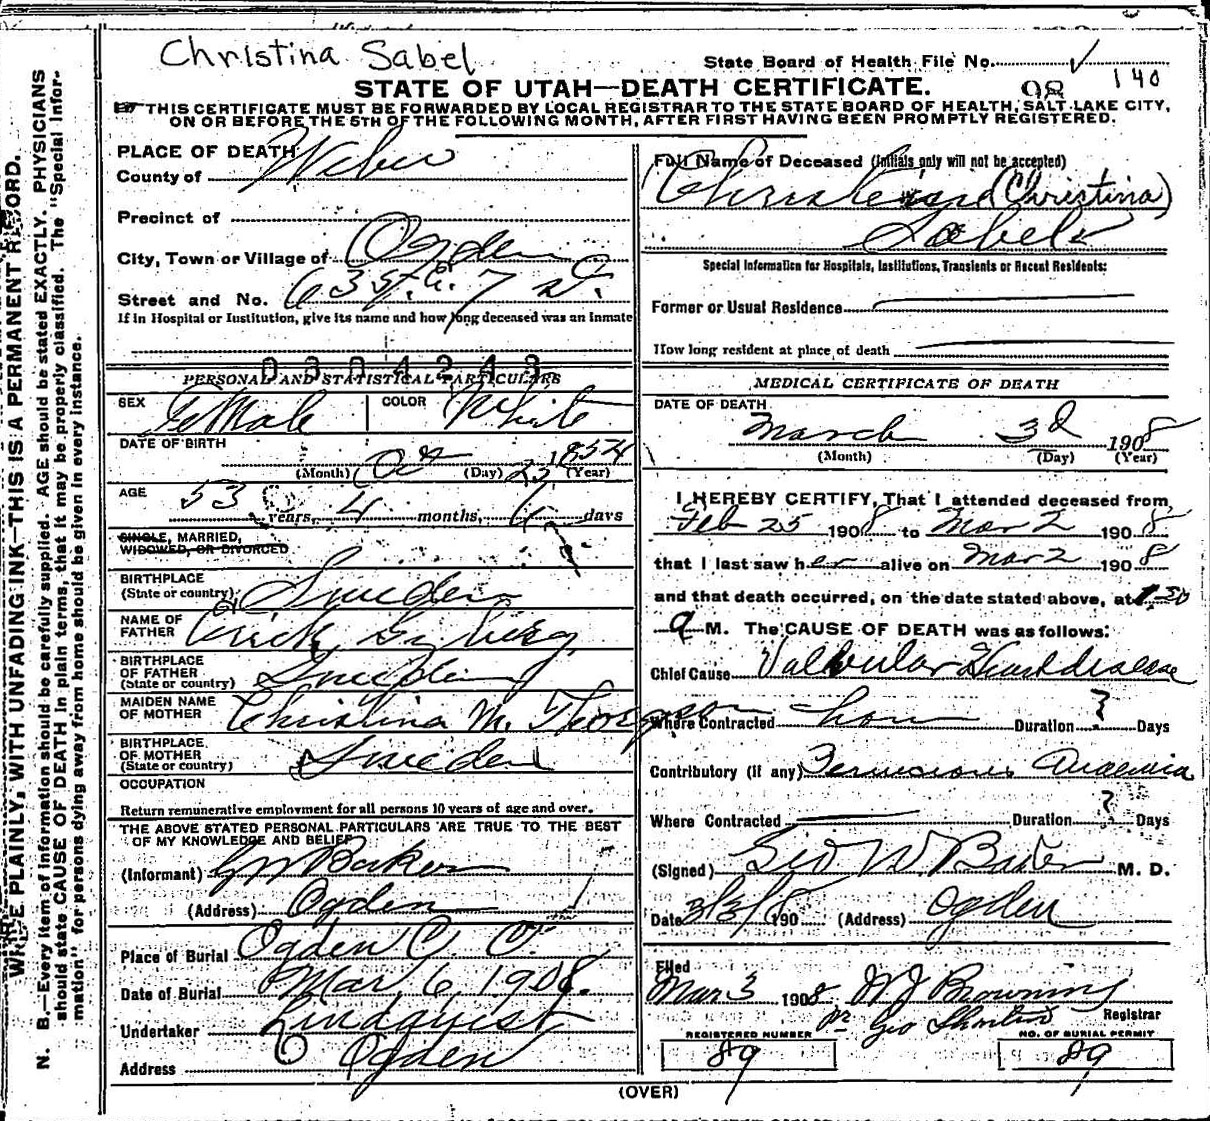 Christina Sabel
State Board of Health File No.
STATE OF UTAH—DEATH CERTIFICATE. 98 140
THIS CERTIFICATE MUST BE FORWARDED BY LOCAL REGISTRAR TO THE STATE BOARD OF HEALTH, SALT LAKE CITY,
ON OR BEFORE THE 5TH OF THE FOLLOWING MONTH, AFTER FIRST HAVING BEEN PROMPTLY REGISTERED.
WRITE PLAINLY, WITH UNFADING INK—THIS IS A PERMANENT RECORD.
N. B.—Every item of information should be carefully supplied. AGE should be stated EXACTLY. PHYSICIANS
should state CAUSE OF DEATH in plain terms, that it may be properly classified. The "Special Infor-
mation" for persons dying away from home should be given in every instance.
PLACE OF DEATH
County of Weber
Precinct of
City, Town or Village of Ogden
Street and No. 7
If in Hospital or Institution, give its name and how long deceased was an Inmate
PERSONAL AND STATISTICAL PARTICULARS
SEX Female COLOR White
DATE OF BIRTH
Oct 23 1854
(Month) (Day) (Year)
AGE
53 years, 4 months, days
SINGLE, MARRIED,
WIDOWED, OR DIVORCED
BIRTHPLACE
(State or country) Sweden
NAME OF
FATHER
BIRTHPLACE
OF FATHER
(State or country) Sweden
MAIDEN NAME
OF MOTHER Christina M.
BIRTHPLACE
OF MOTHER
(State or country) Sweden
OCCUPATION
Return remunerative employment for all persons 10 years of age and over.
THE ABOVE STATED PERSONAL PARTICULARS ARE TRUE TO THE BEST
OF MY KNOWLEDGE AND BELIEF
(Informant) Baker
(Address) Ogden
Place of Burial Ogden C. C.
Date of Burial Mar, 6, 1908.
Undertaker Lindquist
Address Ogden
Full Name of Deceased (Initials only will not be accepted)
(Christina)
Special Information for Hospitals, Institutions, Transients or Recent Residents:
Former or Usual Residence
How long resident at place of death
MEDICAL CERTIFICATE OF DEATH
DATE OF DEATH
March 3d 1908
(Month) (Day) (Year)
I HEREBY CERTIFY, That I attended deceased from
Feb 25 1908 to Mar 2 1908
that I last saw her alive on Mar 2 1908
and that death occurred, on the date stated above, at
a M. The CAUSE OF DEATH was as follows:
Chief Cause Valvular Heart disease
Where Contracted Duration ? Days
Contributory (if any) Pernicious Anaemia
Where Contracted Duration ? Days
(Signed) Geo W. Baker M. D.
Date 3/3/8 190 (Address) Ogden
Filed
Mar 3 1908, Browning
Registrar
REGISTERED NUMBER NO. OF BURIAL PERMIT
89 89
(OVER)